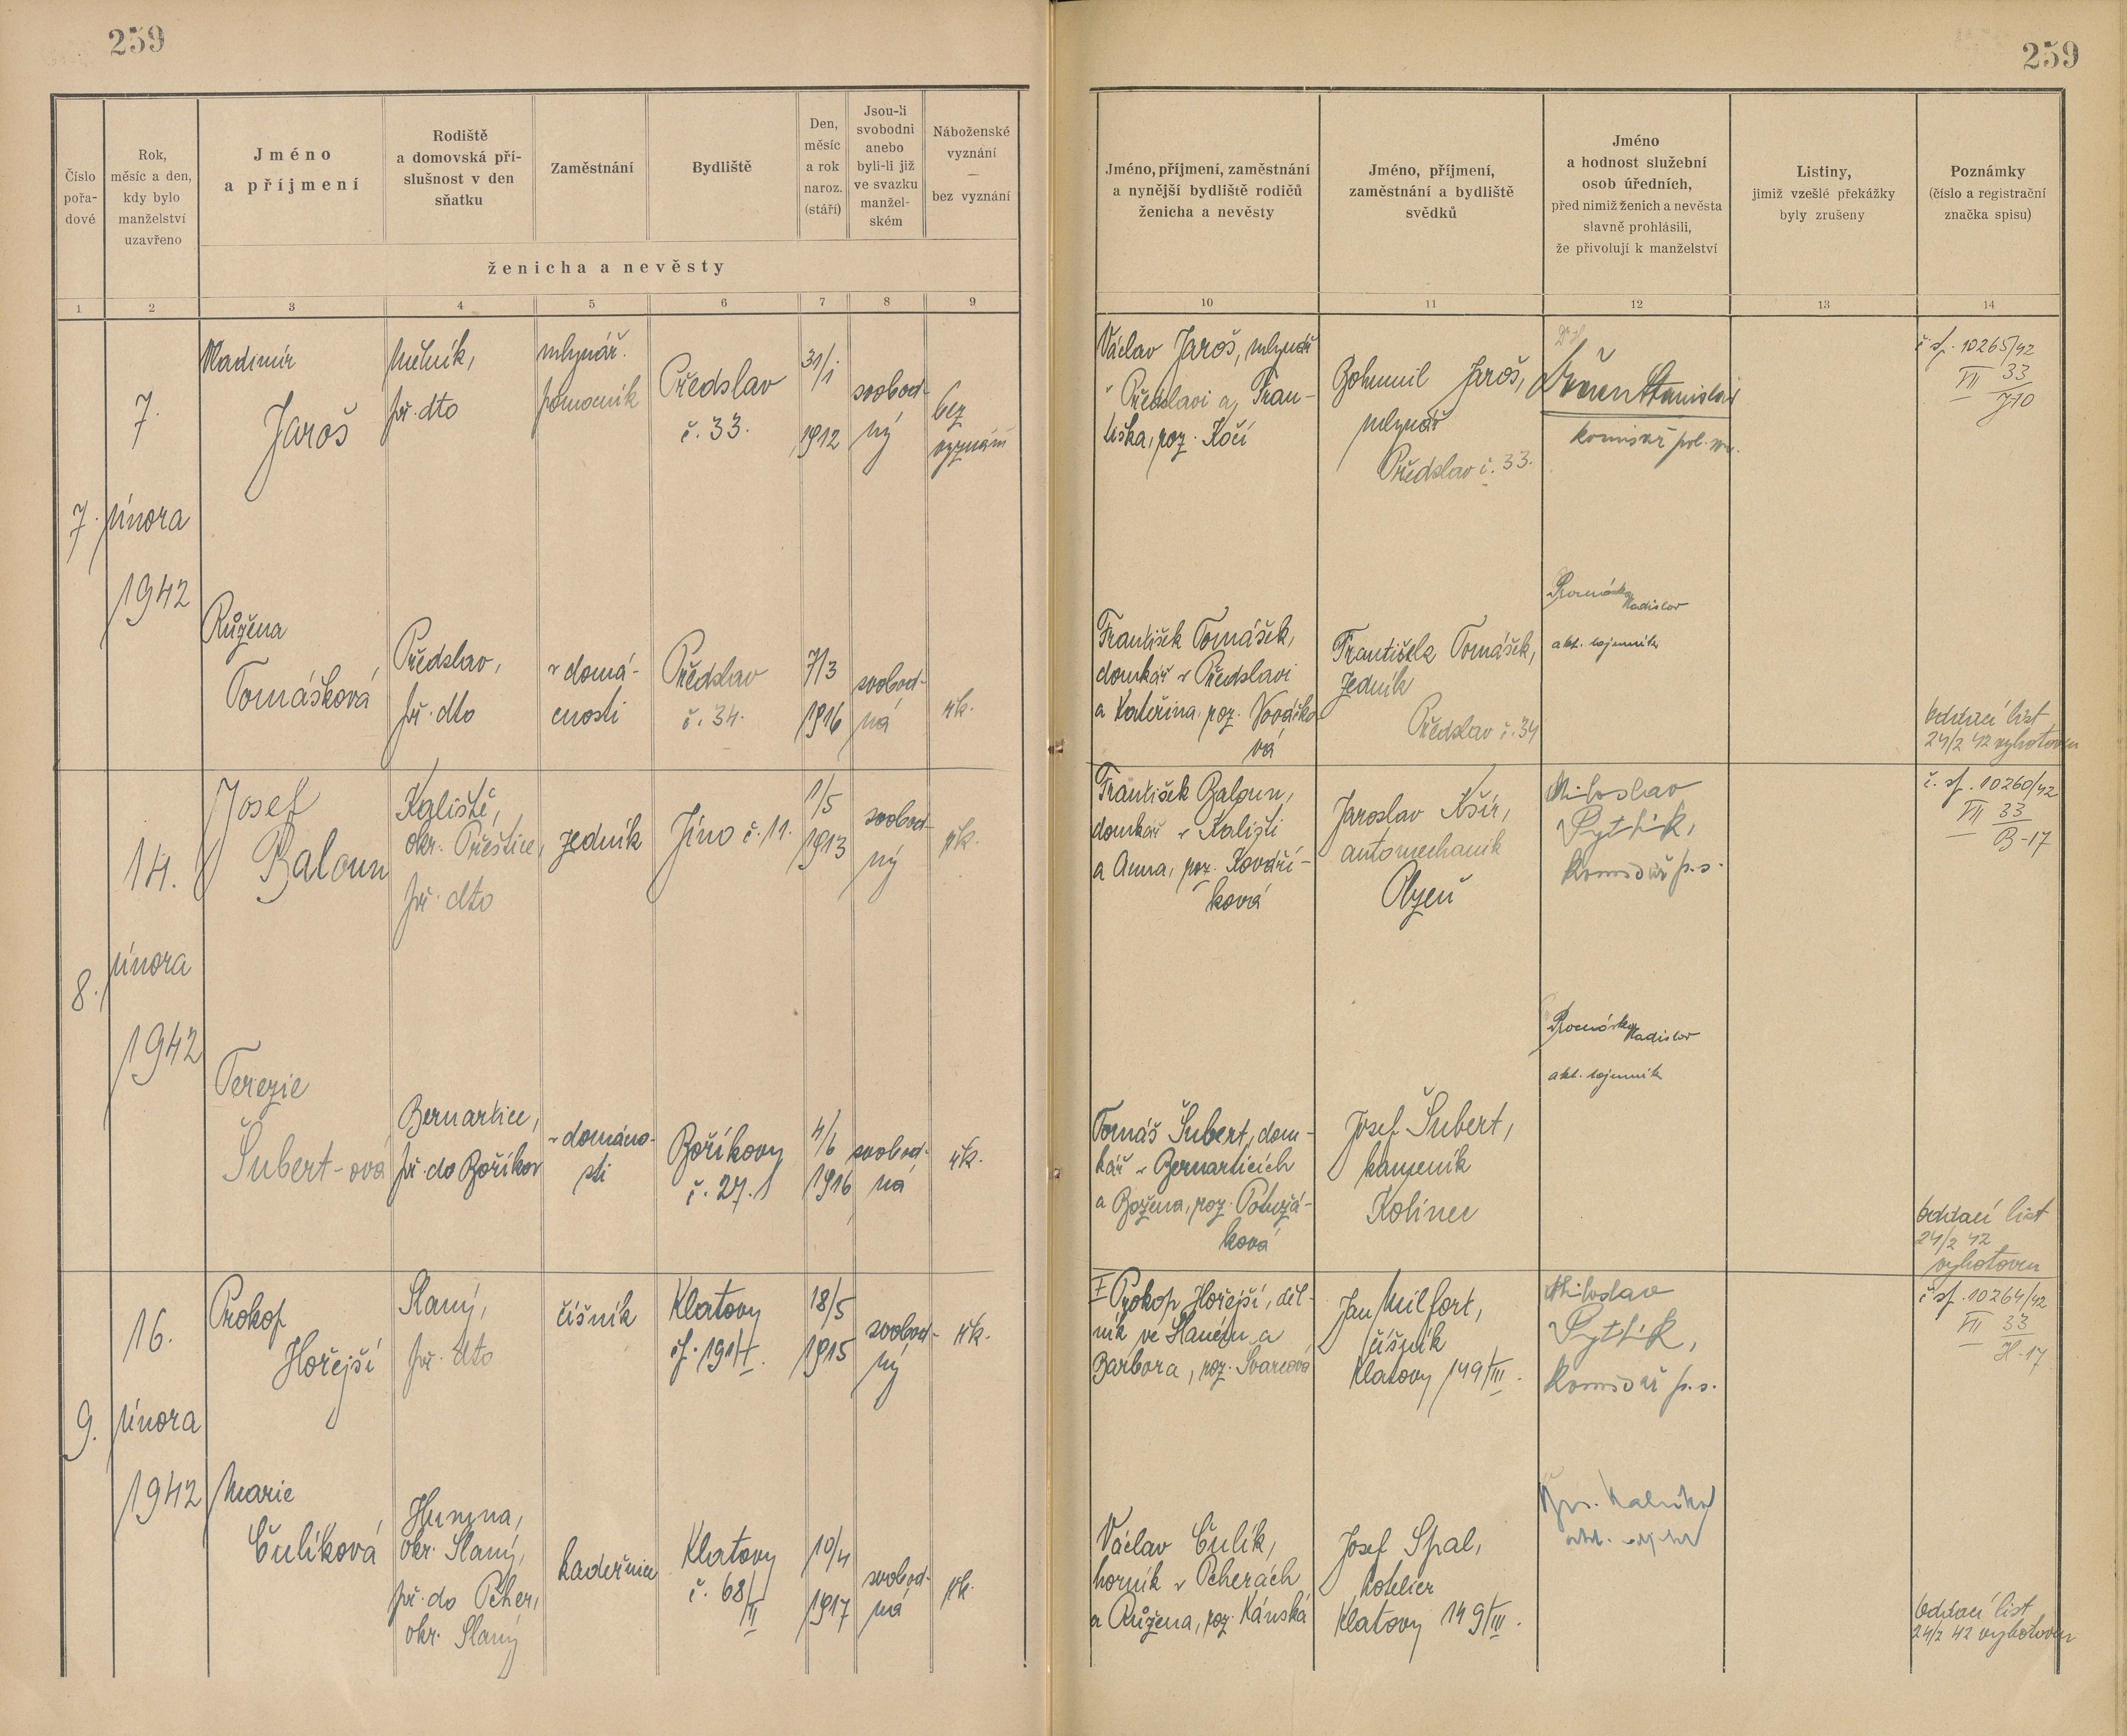 259
259
Číslo
pořa-
dové
Rok,
měsíc a den,
kdy bylo
manželství
uzavřeno
Jméno
a příjmení
Rodiště
a domovská pří-
slušnost v den
sňatku
Zaměstnání
Bydliště
Den,
měsíc
a rok
naroz.
(stáří)
Jsou-li
svobodni
anebo
byli-li již
ve svazku
manžel-
ském
Náboženské
vyznání
—
bez vyznání
ženicha a nevěsty
Jméno, příjmení, zaměstnání
a nynější bydliště rodičů
ženicha a nevěsty
Jméno, příjmení,
zaměstnání a bydliště
svědků
Jméno
a hodnost služební
osob úředních,
před nimiž ženich a nevěsta
slavně prohlásili,
že přivolují k manželství
Listiny,
jimiž vzešlé překážky
byly zrušeny
Poznámky
(číslo a registrační
značka spisu)
1 2 3 4 5 6 7 8 9 10 11 12 13 14
7.
7.
února
1942
Vladimír
Jaroš
Mělník,
př. dto
mlynář.
pomocník
Předslav
č. 33.
31/1
1912
svobod-
ný
bez
vyznání
Václav Jaroš, mlynář
v Předslavi a Fran-
tiška, roz. Kočí
Bohumil Jaroš,
mlynář
Předslav č. 33.
Stanislav
komisař pol. spr.
č. sp. 10265/42
VII 33
J10
Růžena
Tomášková
Předslav,
př. dto
v domá-
cnosti
Předslav
č. 34.
7/3
1916
svobod-
ná
řk.
František Tomášek,
domkář v Předslavi
a Kateřina, roz. Nováčko
vá
František Tomášek,
zedník
Předslav č. 34
Ladislav
akt. tajemník
Oddací list
24/2 42 vyhotoven
8.
14.
února
1942
Josef
Baloun
Kaliště,
okr. Přeštice,
př. dto
zedník
Jíno č. 11.
1/5
1913
svobod-
ný
řk.
František Baloun,
domkář v Kališti
a Anna, roz. Kovaří-
ková
Jaroslav Kšír,
automechanik
Plzeň
Miloslav
Pytlík,
Komisař p.s.
č. sp. 10260/42
VII 33
B-17
Terezie
Šubert-ová
Bernartice,
př. do Bořikov
v domácno-
sti
Bořikovy
č. 27.
4/6
1916
svobod-
ná
řk.
Tomáš Šubert, dom-
kář v Bernarticích
a Božena, roz. Potužá-
ková
Josef Šubert,
kameník
Kolinec
Ladislav
akt. tajemník
Oddací list
24/2 42
vyhotoven
9.
16.
února
1942
Prokop
Hořejší
Slaný,
př. dto
číšník
Klatovy
čp. 191/I.
18/5
1915
svobod-
ný
řk.
Prokop Hořejší, děl-
ník ve Slaném a
Barbora, roz. Švarcová
Jan Milfort,
číšník
Klatovy 149/III.
Miloslav
Pytlík,
Komisař p.s.
č. sp. 10264/42
VII 33
H-17
Marie
Čulíková
Humna,
okr. Slaný,
př. do Pcher,
okr. Slaný
kadeřnice
Klatovy
č. 68/II
10/4
1917
svobod-
ná
řk.
Václav Čulík,
horník v Pcherách
a Růžena, roz. Kánská
Josef Spal,
hotelier
Klatovy 149/III.
Oddací list
24/2 42 vyhotoven